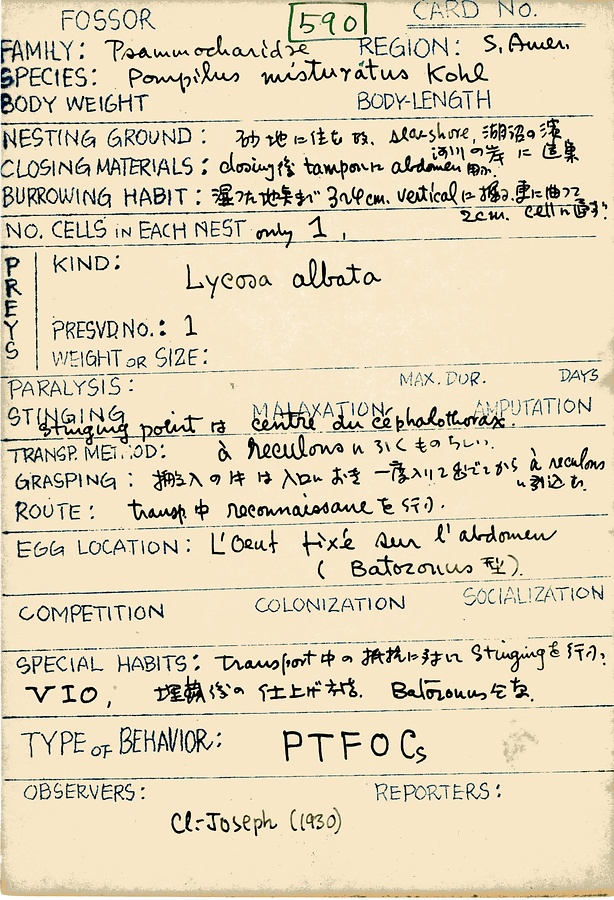 FOSSOR 590 CARD NO.
FAMILY: Psammocharidae REGION: S. Amer.
SPECIES: Pompilus misturatus Kohl
BODY WEIGHT BODY-LENGTH
NESTING GROUND: 砂地に住む故, sea-shore, 湖沼の濱
河川の岸に造巣
CLOSING MATERIALS: closing後 tamponに abdomen 用ふ.
BURROWING HABIT: 湿つた地点まで 3~4cm. vertical に掘る. 更に曲つて
2cm. cellに直す.
NO. CELLS IN EACH NEST only 1,
PREYS
KIND:
Lycosa albata
PRESVD NO.: 1
WEIGHT OR SIZE:
PARALYSIS: MAX. DUR. DAYS
STINGING MALAXATION AMPUTATION
stinging point は centre du céphalothorax.
TRANSP. METHOD: à reculons に引くものらしい.
GRASPING: 搬入の件は入口におき 一度入りて出でてから à reculons
に引込む.
ROUTE: transp. 中 reconnaissane を行ふ.
EGG LOCATION: L'Oeuf fixé sur l'abdomen
( Batozonus 型).
COMPETITION COLONIZATION SOCIALIZATION
SPECIAL HABITS: transport 中の抵抗に対して Stinging を行ふ.
VIO, 埋鎖後の仕上げ方法. Batozonus
TYPE OF BEHAVIOR: PTFOCs
OBSERVERS: REPORTERS:
Cl-Joseph (1930)